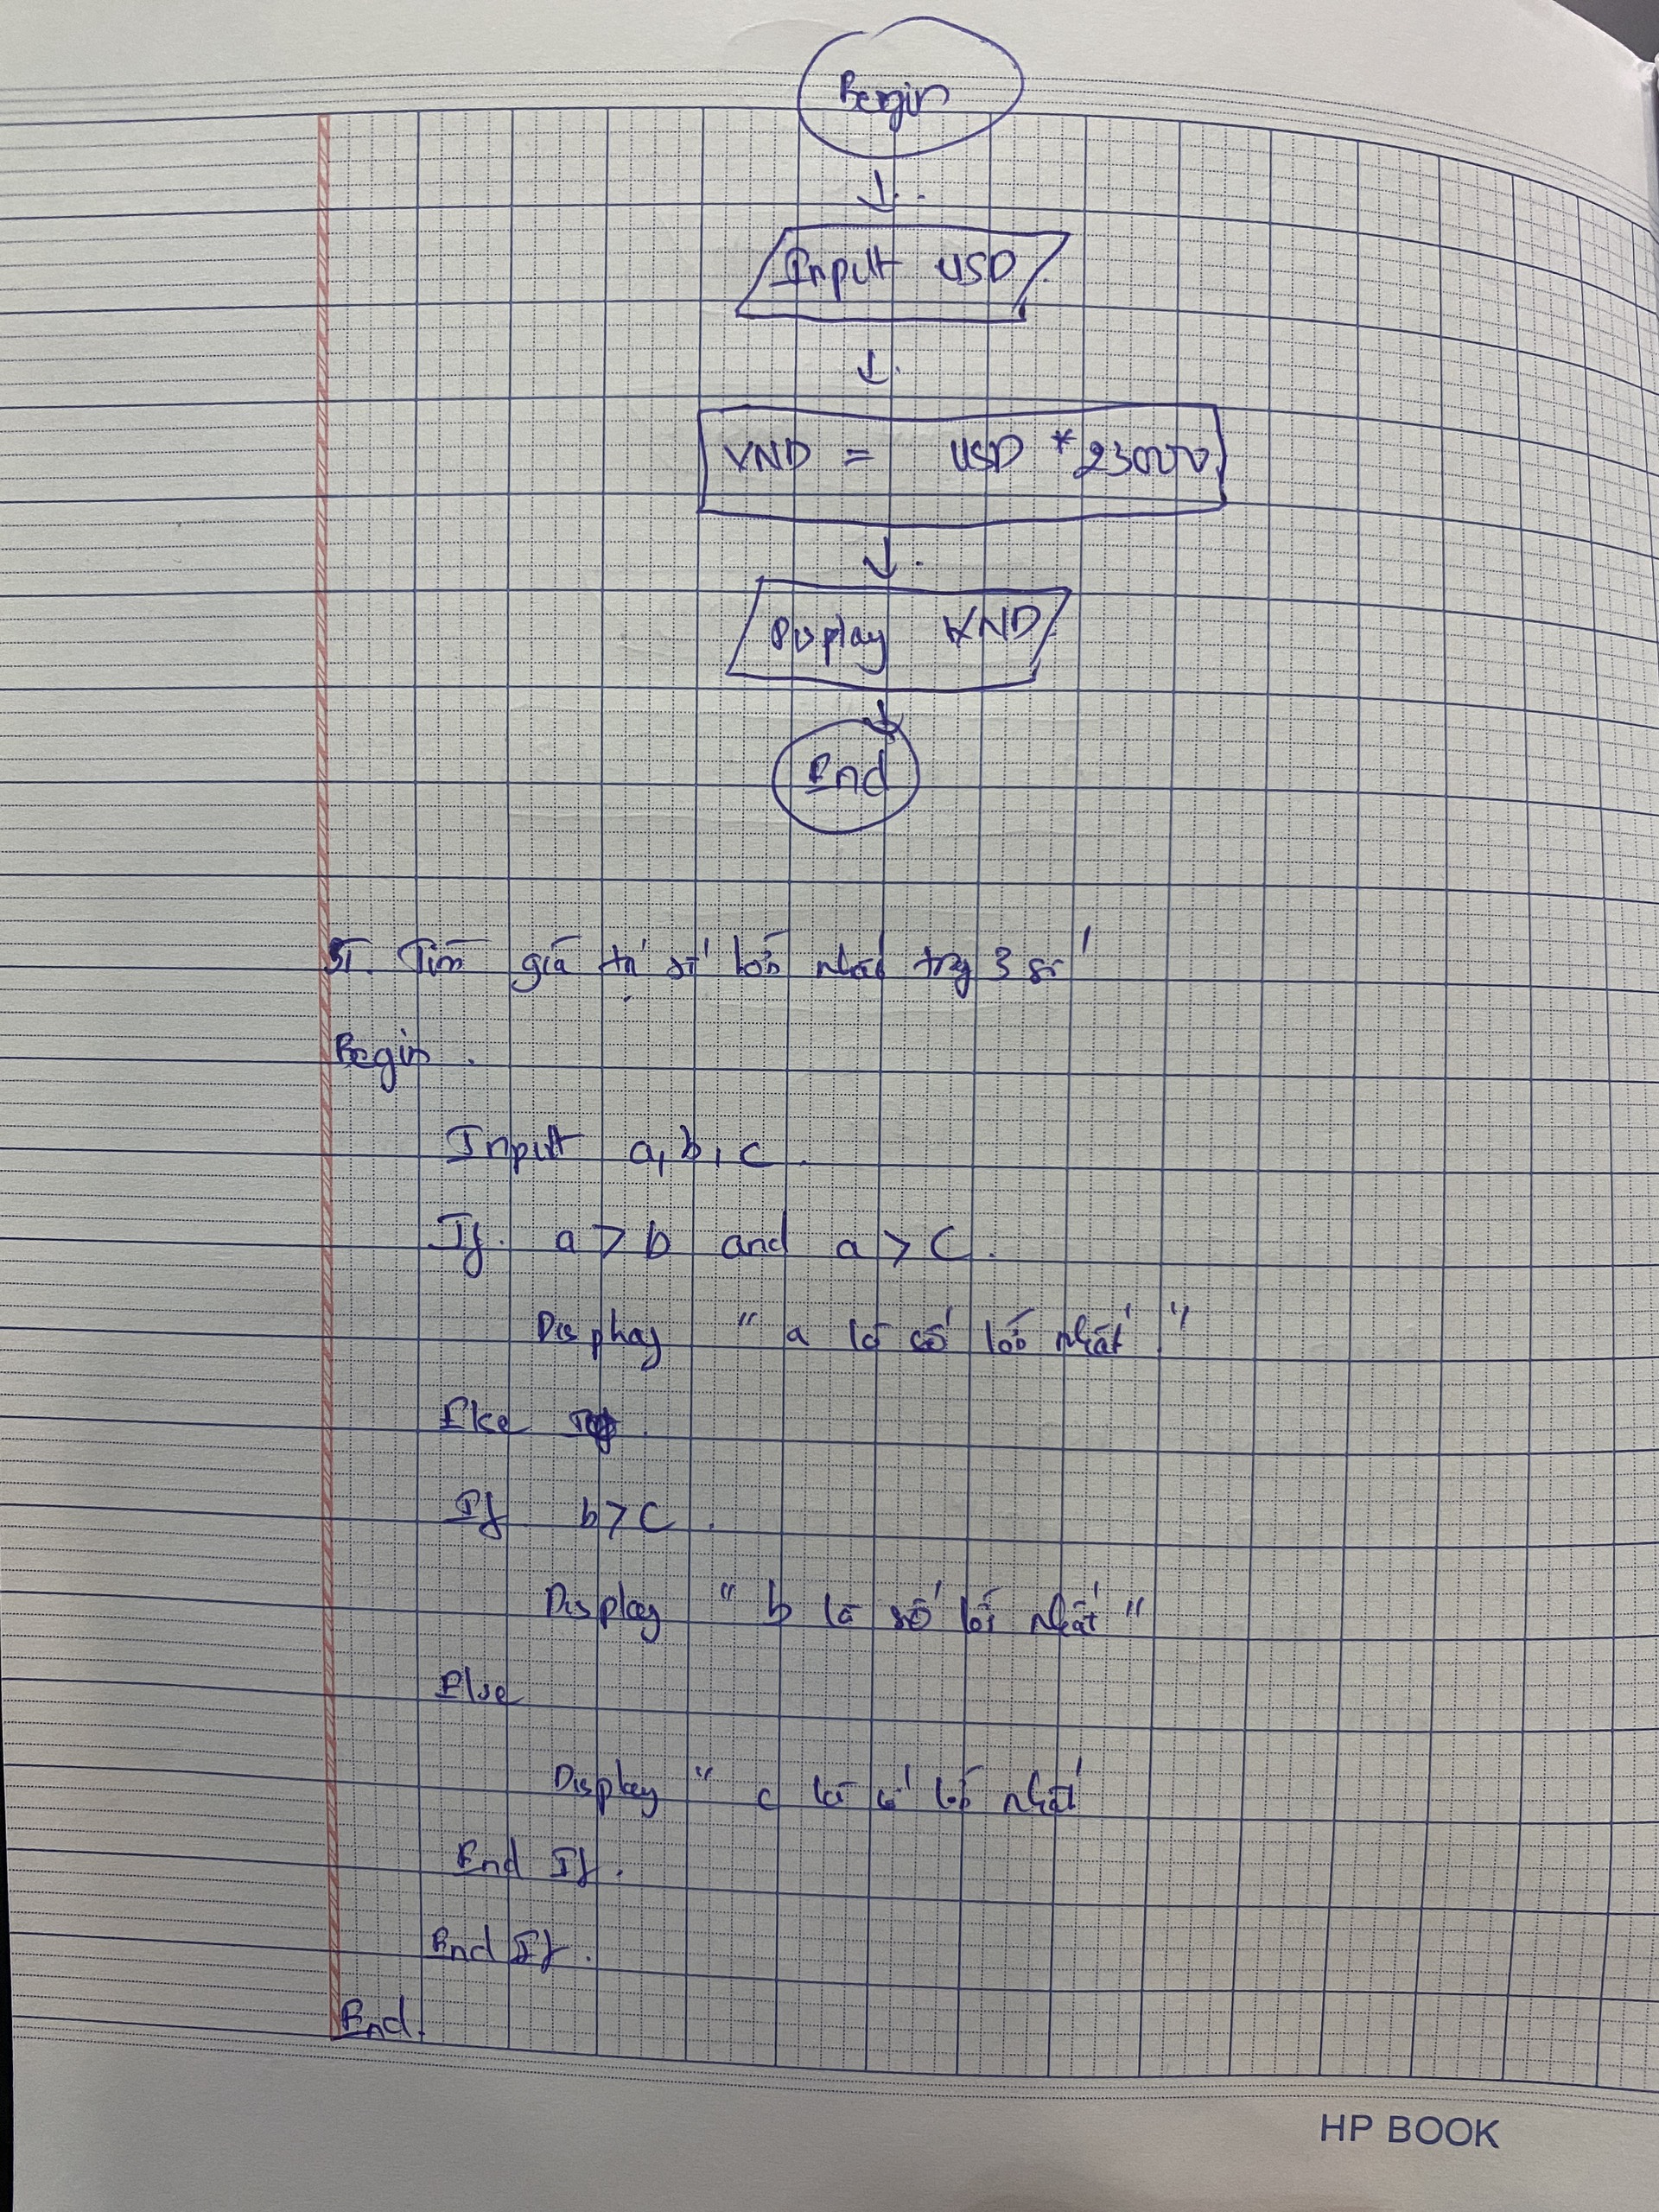 Begin
Input USD
VND = USD * 23000
Display VND
End
5. Tìm giá trị số lớn nhất trg 3 số
Begin
Input a, b, c
If a > b and a > c
Display " a là số lớn nhất "
Else
If b > c
Display " b là số lớn nhất "
Else
Display " c là số lớn nhất
End If.
End If.
End.
HP BOOK